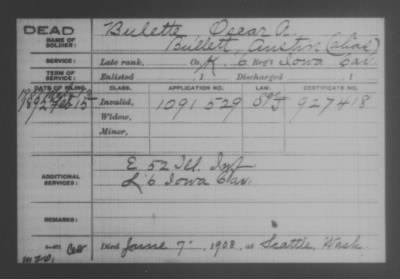 DEAD
NAME OF SOLDIER: Bulette Oscar A.
Bullett, Austin (alias)
SERVICE: Late rank, Co. K, 6 Reg't Iowa Cav.
TERM OF SERVICE: Enlisted , 1 Discharged , 1
DATE OF FILING. CLASS. APPLICATION NO. LAW. CERTIFICATE NO.
1892 Feb 15 Invalid, 1091529 927418
Widow,
Minor,
ADDITIONAL SERVICES: E 52 Ill. Inf
L 6 Iowa Cav.
REMARKS:
Died June 7, 1908, at Seattle, Wash.